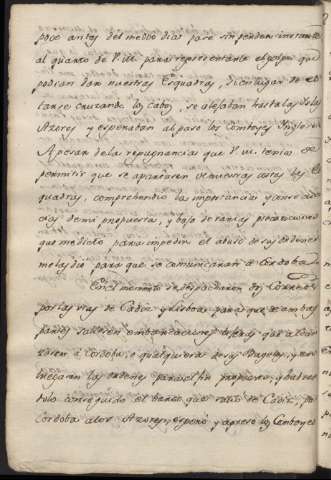 poco antes del medio dia pasé sin perder instante
al quarto de V.M. para representarle el golpe que
podrian dar nuestras Esquadras, si en lugar de es-
tarse cruzando los cabos, se alejaban hasta las Islas
Azores y esperaban al paso los Comboyes Ingleses
Apesar de la repugnancia que V.M. tenia de
permitir que se aprestasen de nuestras costas las Es
quadras, comprehendió la importancia
de mi propuesta, y bajo de varias precauciones
que me dictó para impedir el abuso de sus ordenes
me las dió para que se comunicasen á Cordoba
En el momento se despacharon dos Correos
por las vias de Cadiz y Lisboa para que de ambas
partes saliesen embarcaciones ligeras que alcan
zasen á Cordoba, ó qualquiera de sus Bageles, y en
tregasen las ordenes para el fin propuesto, y habien
dolo conseguido el barco que salió de Cadiz,
Cordoba a las Azores, esperó y apresó los Comboyes